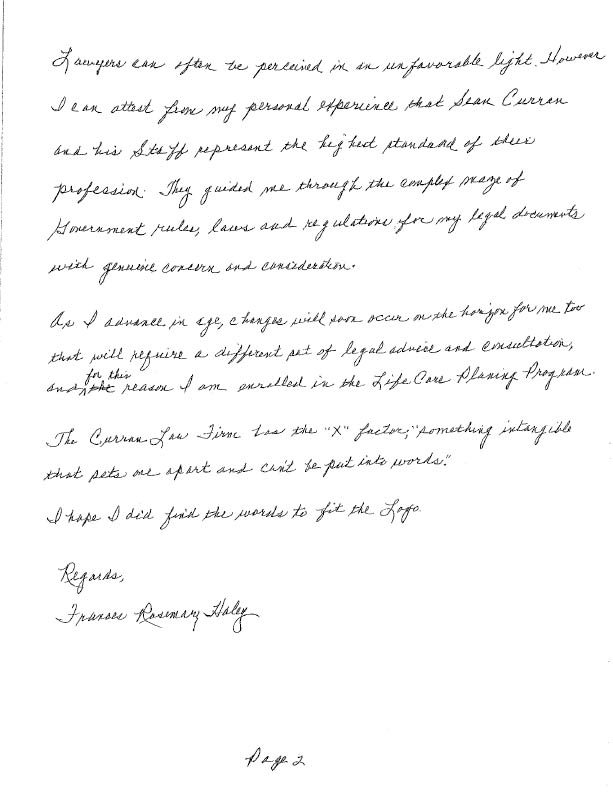 Lawyers can often be perceived in an unfavorable light. However
I can attest from my personal experience that Sean Curran
and his Staff represent the highest standard of their
profession. They guided me through the complex maze of
Government rules, laws and regulations for my legal documents
with genuine concern and consideration.
As I advance in age, changes will soon occur on the horizon for me too
that will require a different set of legal advice and consultation,
for this
and the reason I am enrolled in the Life Care Planing Program.
The Curran Law Firm has the "X" factor, "something intangible
that sets one apart and can't be put into words."
I hope I did find the words to fit the Logo.
Regards,
Frances Rosemary Haley
Page 2